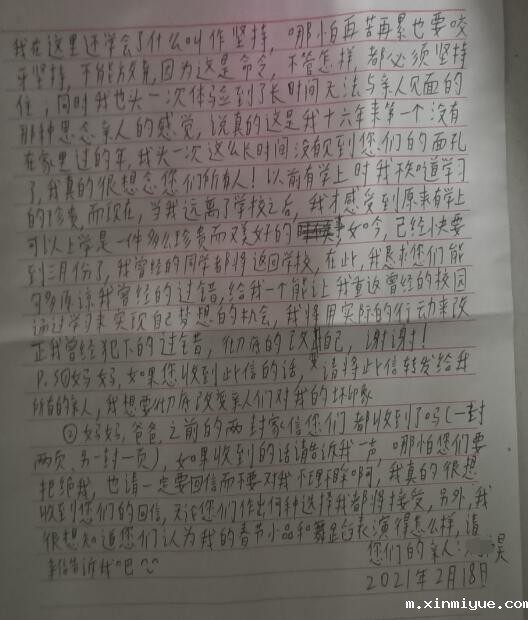 我在这里还学会了什么叫作坚持，哪怕再苦再累也要咬
牙坚持，不能放弃，因为这是命令，不管怎样都必须坚持
住，同时我也头一次体验到了长时间无法与亲人见面的
那种思念亲人的感觉，说真的这是我十六年来第一个没有
在家里过的年，我头一次这么长时间没有见到您们的面孔
了，我真的很想念您们所有人！以前有学上时我不知道学习
的珍贵，而现在，当我远离了学校之后，我才感受到原来有学上
可以上学是一件多么珍贵而又美好的事如今，已经快要
到三月份了，我曾经的同学都将返回学校，在此，我恳求您们能
够原谅我曾经的过错，给我一个能让我重返曾经的校园
通过学习来实现自己梦想的机会，我将用实际的行动来改
正我曾经犯下的过错，彻底的改变自己，谢谢！
P.S①妈妈，如果您收到此信的话，请将此信转发给我
所有的亲人，我想要彻底改变亲人们对我的坏印象
②妈妈，爸爸，之前的两封家信您们都收到了吗（一封
两页，另一封一页），如果收到的话请告诉我一声，哪怕您们要
拒绝我，也请一定要回信而不要对我不理不睬啊，我真的很想
收到您们的回信，无论您们作出何种选择我都将接受，另外，我
很想知道您们认为我的春节小品和舞台表演得怎么样，请
来信告诉我吧
您们的亲人：昊
2021年2月18日
m.xinmiyue.com